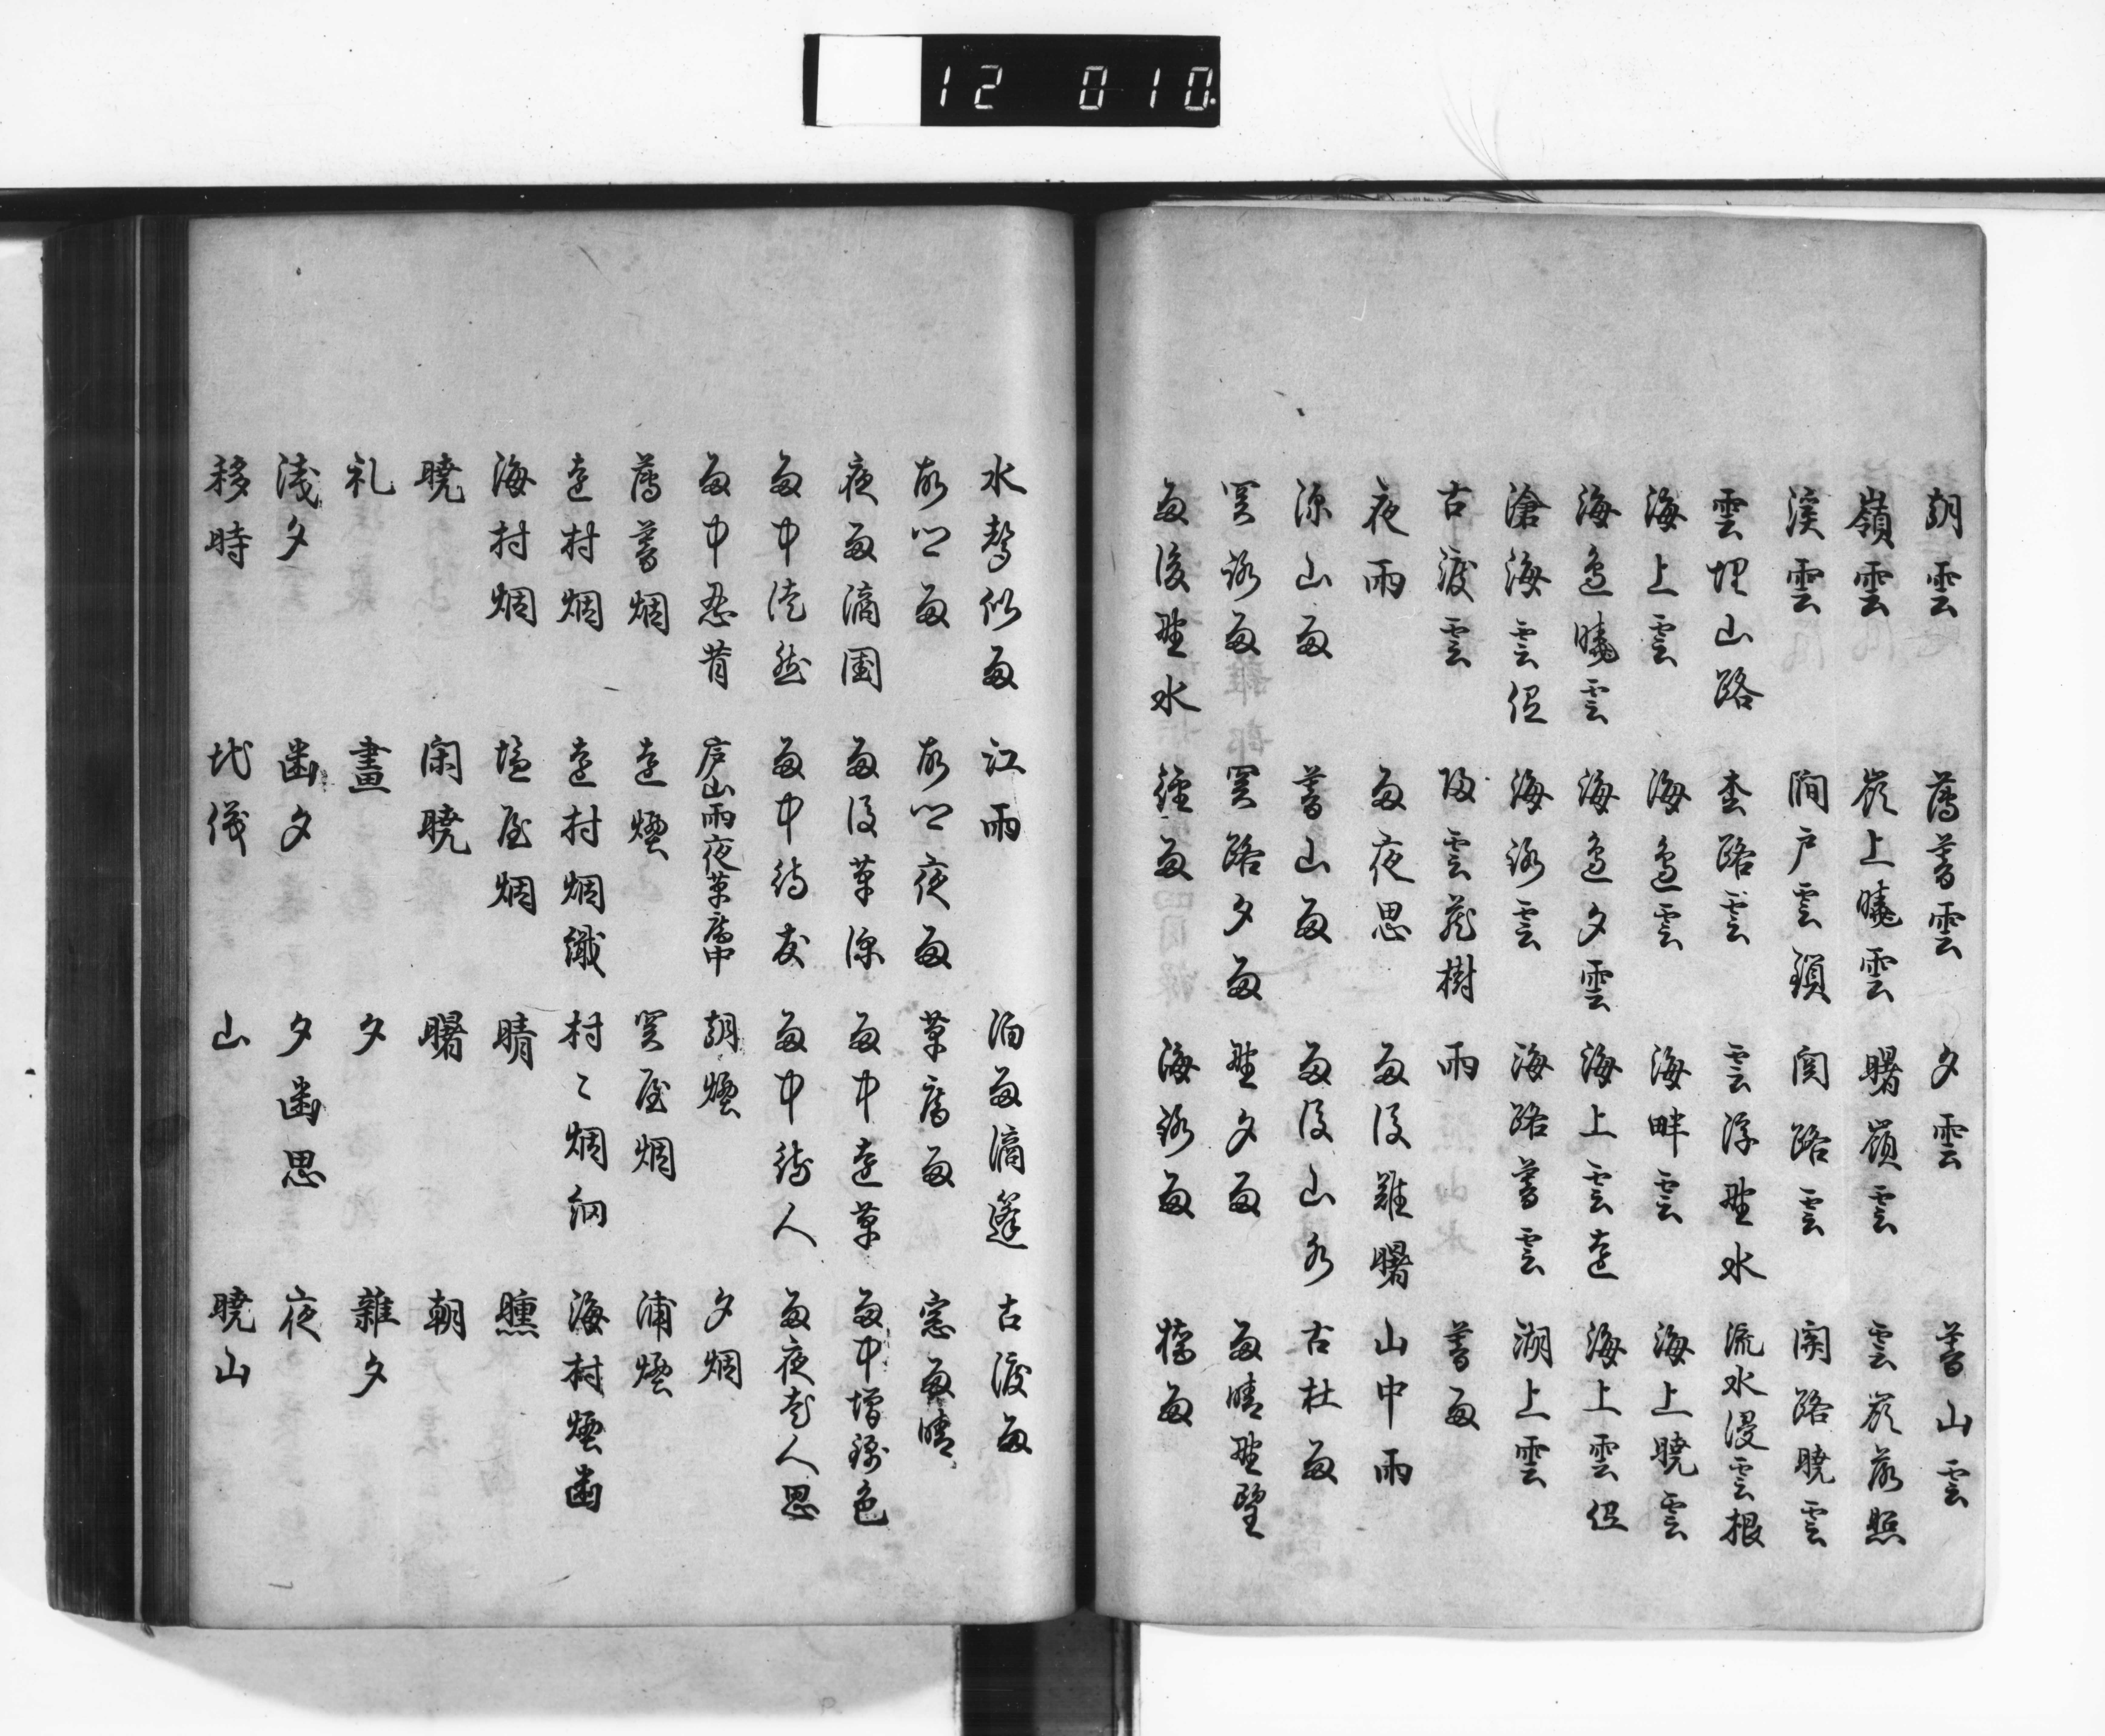 12 010
朝雲 薄暮雲 夕雲 暮山雲
嶺雲 嶺上曉雲 曙嶺雲 雲嶺落照
溪雲 澗戸雲鎖 関路雲 関路曉雲
雲埋山路 杢路雲 雲浮野水 流水浸雲根
海上雲 海邊雲 海畔雲 海上曉雲
海邊曉雲 海邊夕雲 海上雲遠 海上雲低
滄海雲低 海路雲 海路暮雲 湖上雲
古渡雲 帰雲蔵樹 雨 暮雨
夜雨 雨夜思 雨後難曙 山中雨
深山雨 暮山雨 雨後山水 古杜雨
羇路雨 羇路夕雨 野夕雨 雨晴野望
雨後野水 樵雨 海路雨 橋雨
水声似雨 江雨 泊雨滴篷 古渡雨
故郷雨 故郷夜雨 草庵雨 窓雨晴
夜雨滴園 雨後草深 雨中遠草 雨中増緑色
雨中徒然 雨中待友 雨中待人 雨夜老人思
雨中忍昔 庐山雨夜草庵中 朝煙 夕烟
薄暮烟 遠煙 羇屋烟 浦煙
遠村烟 遠村烟纖 村〻烟細 海村煙幽
海村烟 塩屋烟 晴 曛
曉 閑曉 曙 朝
礼 晝 夕 雜夕
浅夕 幽夕 夕幽思 夜
移時 地儀 山 曉山